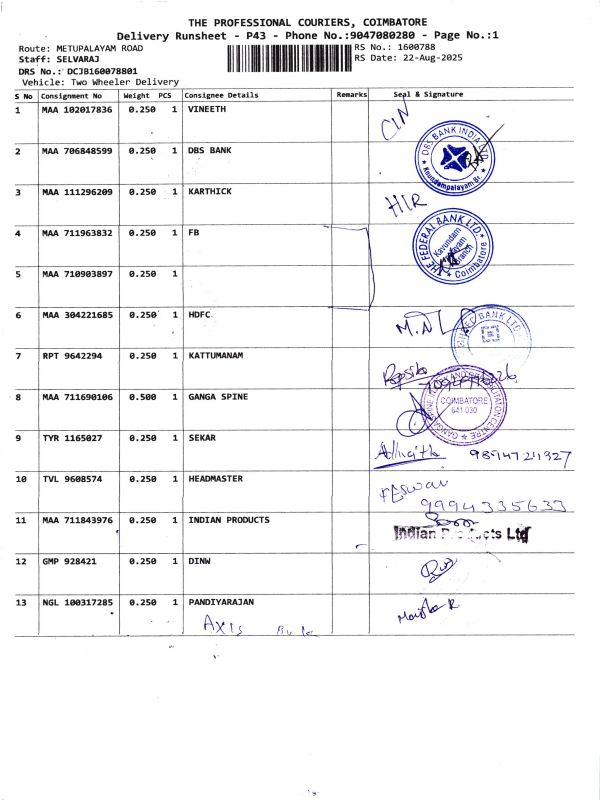 THE PROFESSIONAL COURIERS, COIMBATORE
Delivery Runsheet - P43 - Phone No.:9047080280 - Page No.:1
Route: METUPALAYAM ROAD RS No.: 1600788
Staff: SELVARAJ RS Date: 22-Aug-2025
DRS No.: DCJB160078801
Vehicle: Two Wheeler Delivery
S No Consignment No Weight PCS Consignee Details Remarks Seal & Signature
1 MAA 102017836 0.250 1 VINEETH CIN
2 MAA 706848599 0.250 1 DBS BANK DBS BANK INDIA
3 MAA 111296209 0.250 1 KARTHICK HIR
4 MAA 711963832 0.250 1 FB THE FEDERAL BANK LTD. Coimbatore
5 MAA 710903897 0.250 1
6 MAA 304221685 0.250 1 HDFC BANK LTD
7 RPT 9642294 0.250 1 KATTUMANAM
8 MAA 711690106 0.500 1 GANGA SPINE COIMBATORE 641 030
9 TYR 1165027 0.250 1 SEKAR
10 TVL 9608574 0.250 1 HEADMASTER 9994335633
11 MAA 711843976 1 0.250 1 INDIAN PRODUCTS Indian Products Ltd
12 GMP 928421 0.250 1 DINW
13 NGL 100317285 0.250 1 PANDIYARAJAN
AXIS